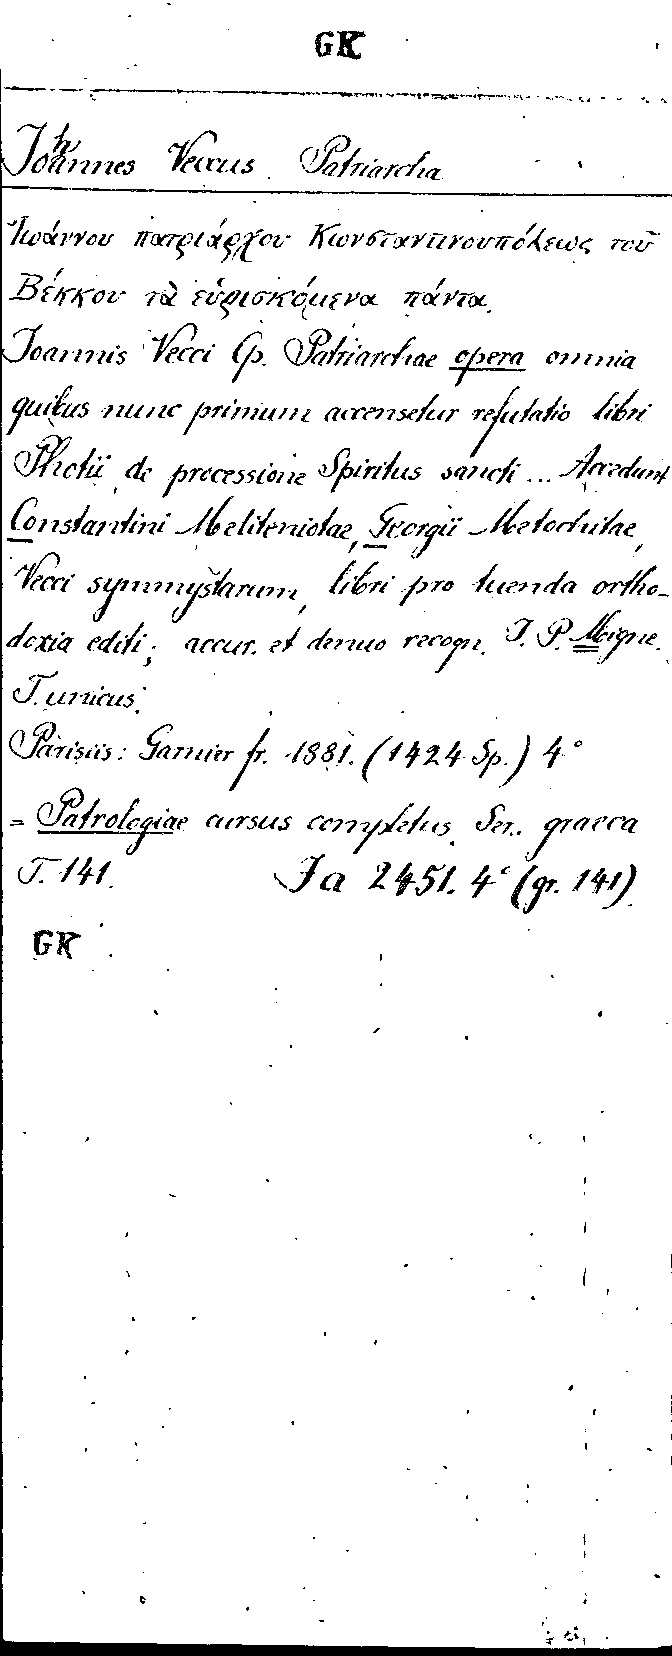 GK
Johannes Veccus Patriarcha
Ἰωάννου πατριάρχου Κωνσταντινουπόλεως τοῦ
Βέκκου τὰ εὑρισκόμενα πάντα.
Joannis Vecci Cp. Patriarchae opera omnia
quibus nunc primum accensetur refutatio libri
Photii de processione Spiritus sancti ... Accedunt
Constantini Meliteniotae, Georgii Metochitae,
Vecci symmystarum, libri pro tuenda ortho-
doxia editi; accur. et denuo recogn. J. P. Migne.
T. unicus.
Parisiis: Garnier fr. 1881. (1424 Sp.) 4°
= Patrologiae cursus completus. Ser. graeca
T. 141. Ja 2451. 4° (gr. 141)
GK